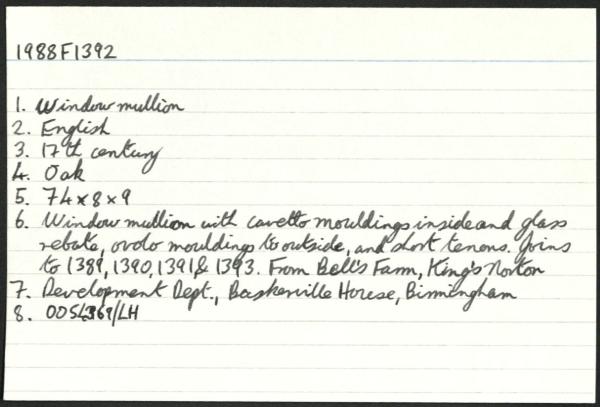 1988F1392
1. Window mullion
2. English
3. 17th century
4. Oak
5. 74 x 8 x 9
6. Window mullion with cavetto mouldings inside and glass
rebate, ovolo mouldings to outside, and short tenons. Joins
to 1389, 1390, 1391 & 1393. From Bell's Farm, King's Norton
7. Development Dept., Baskerville House, Birmingham
8.